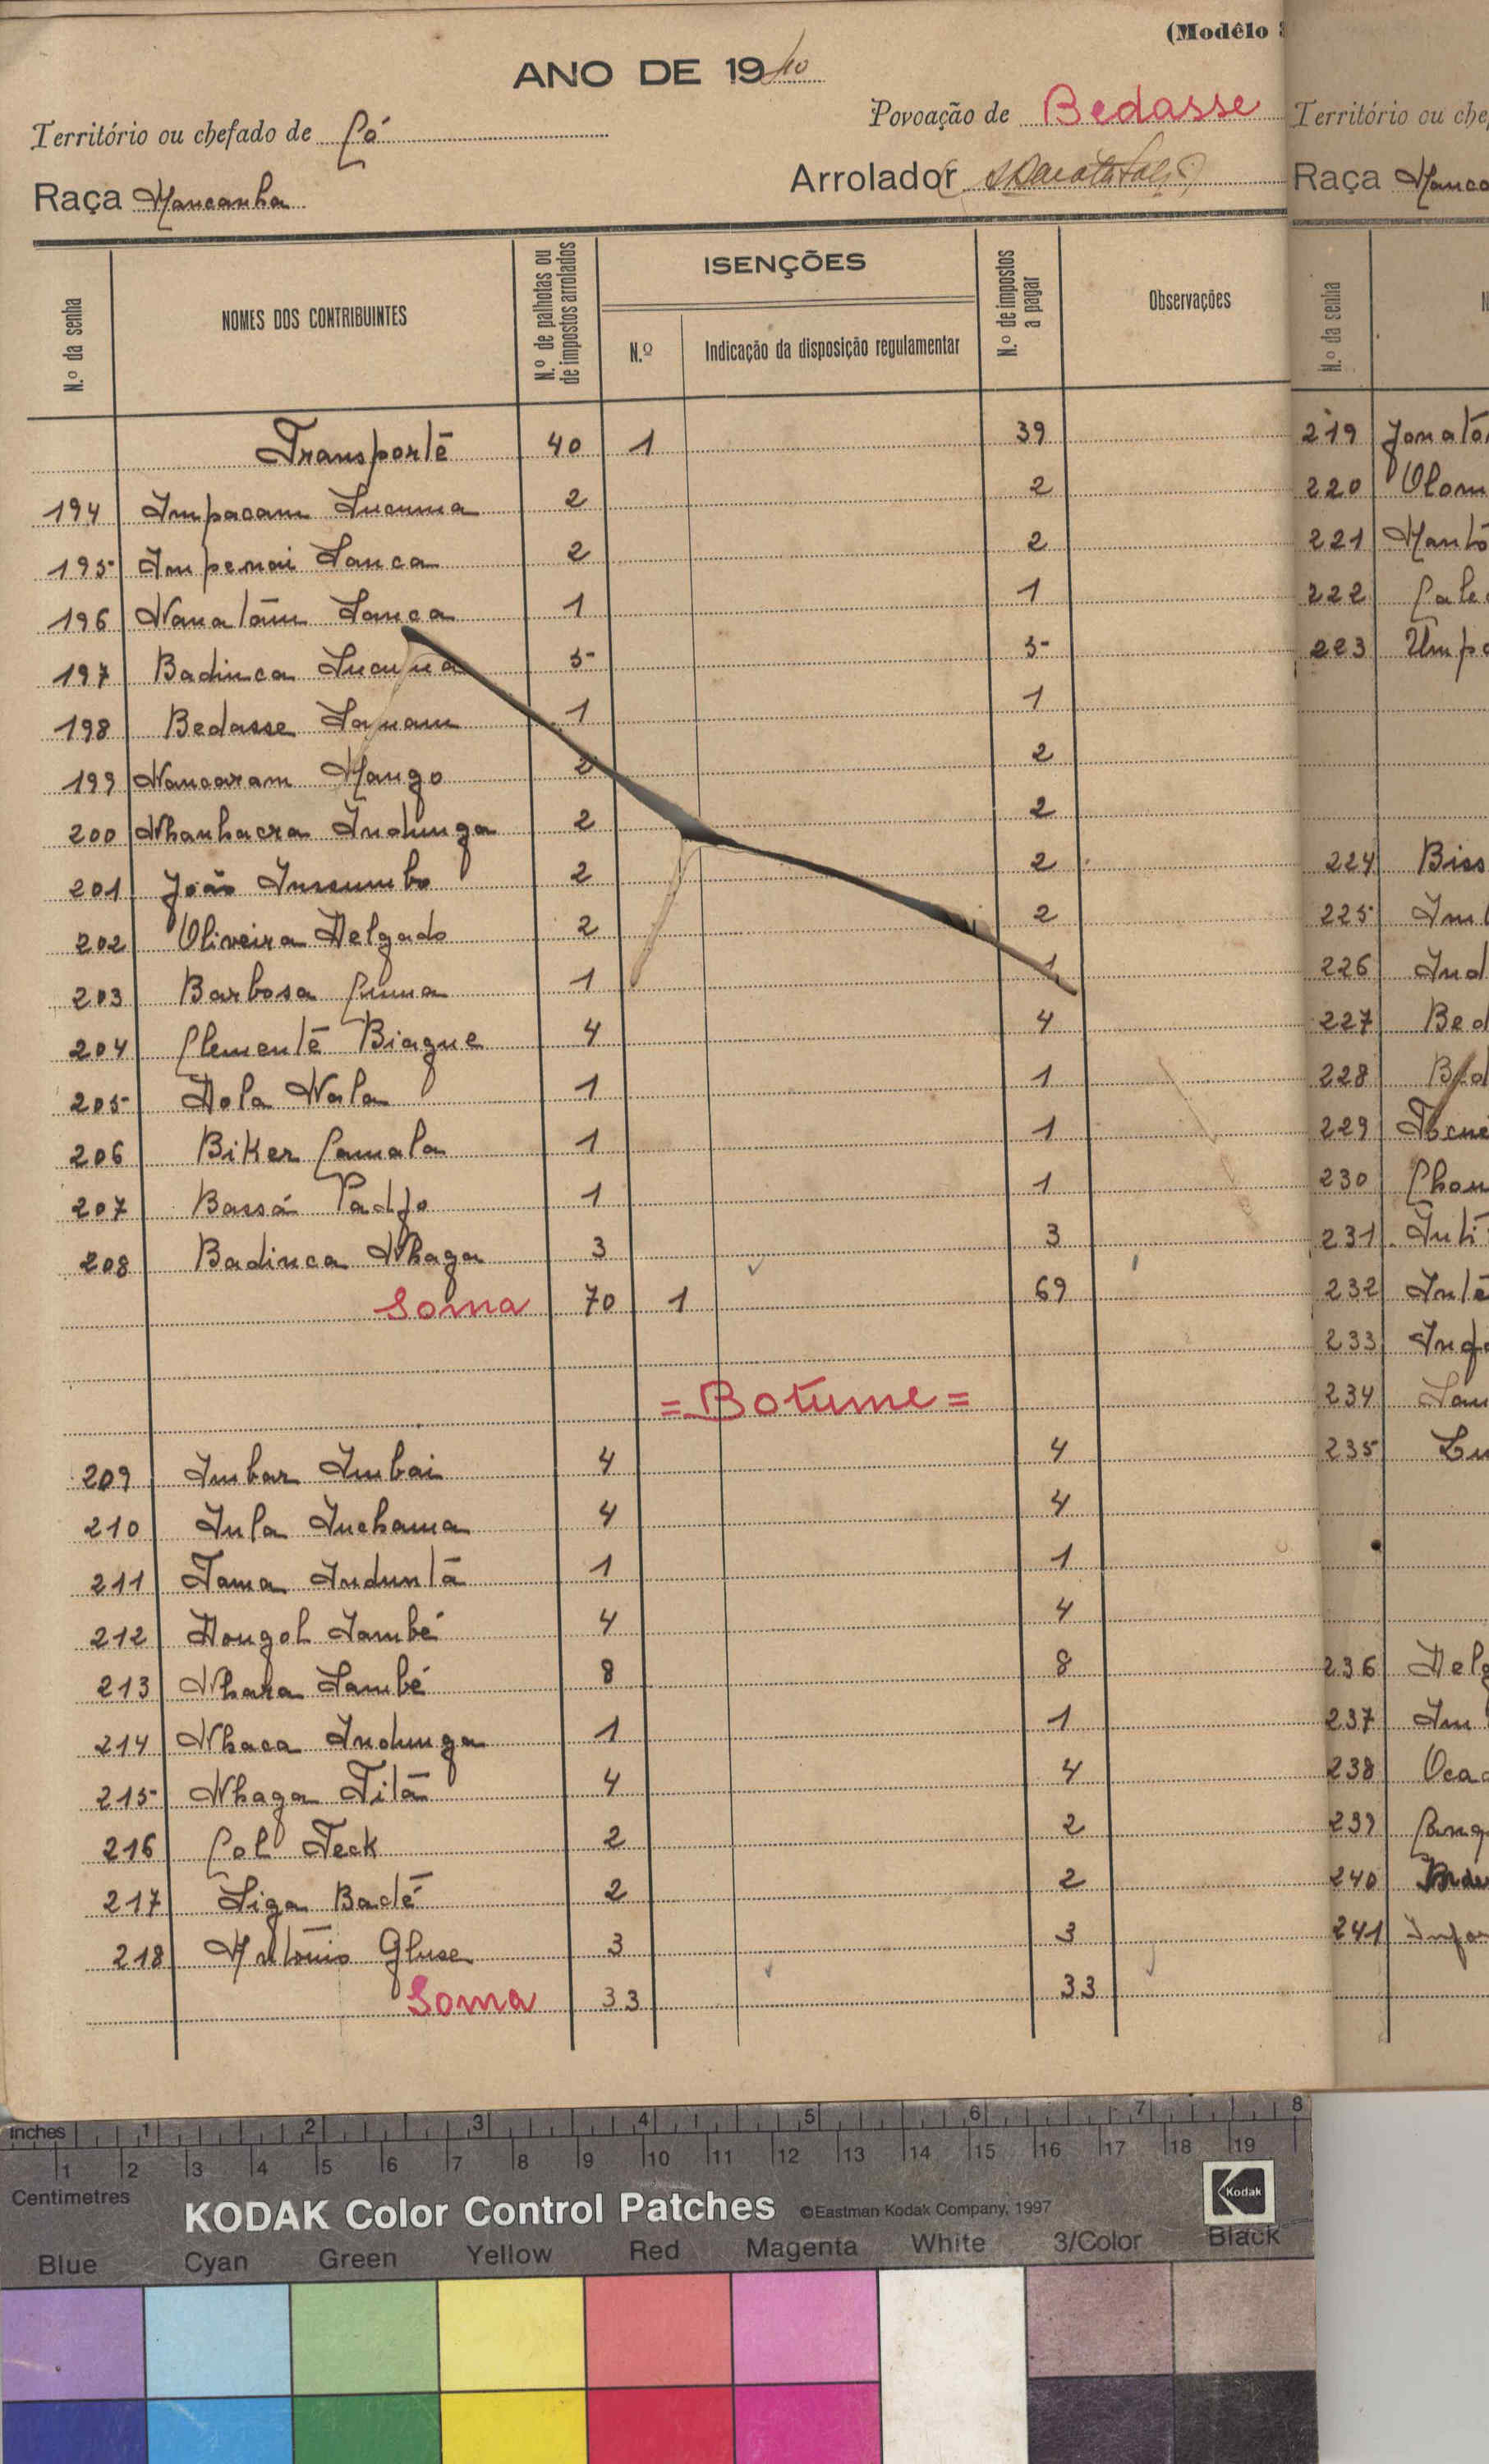 (Modêlo
ANO DE 1940
Território ou chefado de Có
Povoação de Bedasse
Raça Mancanha
Arrolador
N.º da senha
NOMES DOS CONTRIBUINTES
N.º de palhotas ou de impostos arrolados
ISENÇÕES
N.º
Indicação da disposição regulamentar
N.º de impostos a pagar
Observações
Transporte 40 1 39
194 Impacam Lucuma 2 2
195 Impenai Lanca 2 2
196 Nanatam Lanca 1 1
197 Badinca 5 5
198 Bedasse 1 1
199 Nancaram Mango 2 2
200 Nhanhacra Indunga 2 2
201 João Inssumbo 2 2
202 Oliveira Delgado 2 2
203 Barbosa Cuma 1 1
204 Clemente Biague 4 4
205 Dola Nala 1 1
206 Biker Camala 1 1
207 Bassá Padjo 1 1
208 Badinca Nhaga 3 3
Soma 70 1 69
= Botume =
209 Imbar Imbai 4 4
210 Iula Inchama 4 4
211 Tama Induntá 1 1
212 Dongol Lambé 4 4
213 Nhara Lambé 8 8
214 Nhaca Indunga 1 1
215 Nhaga Titá 4 4
216 Col Teck 2 2
217 Liga Badé 2 2
218 António Gluse 3 3
Soma 33 33
Território ou che
Raça Manca
N.º da senha
219
220
221
222
223
224 Biss
225
226
227 Bed
228
229
230
231
232
233
234
235
236 Delg
237
238
239
240
241
inches 1 2 3 4 5 6 7 8
1 2 3 4 5 6 7 8 9 10 11 12 13 14 15 16 17 18 19
Centimetres
KODAK Color Control Patches ©Eastman Kodak Company, 1997 Kodak
Blue Cyan Green Yellow Red Magenta White 3/Color Black